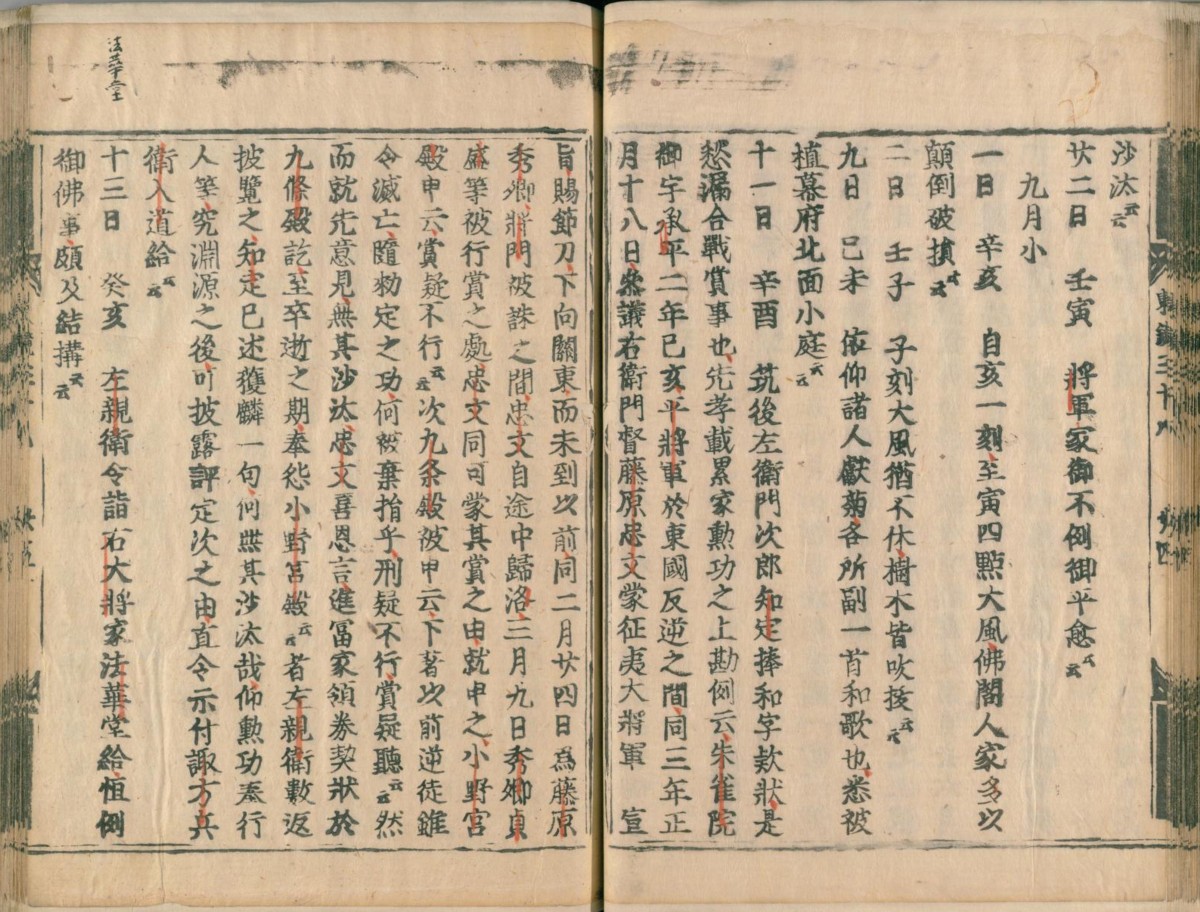 沙汰云云
廿二日 壬寅 將軍家御不例御平愈云云
九月小
一日 辛亥 自亥一刻至寅四點大風佛閣人家多以
顛倒破損云云
二日 壬子 子刻大風猶不休樹木皆吹拔云云
九日 己未 依仰諸人獻菊各所副一首和歌也悉被
植幕府北面小庭云云
十一日 辛酉 筑後左衛門次郎知定捧和字款狀是
愁漏合戰賞事也先孝載累家勲功之上勘例云朱雀院
御宇承平二年己亥平將軍於東國反逆之間同三年正
月十八日叅議右衛門督藤原忠文蒙征夷大將軍 宣
旨賜節刀下向關東而未到以前同二月廿四日爲藤原
秀卿將門被誅之間忠文自途中歸洛三月九日秀卿貞
盛等被行賞之處忠文同可蒙其賞之由就申之小野宮
殿申云賞疑不行云云次九条殿被申云下著以前逆徒雖
令滅亡隨勅定之功何被棄捐乎刑疑不行賞疑聽云云然
而就先意見無其沙汰忠文喜恩言進冨家領券契狀於
九條殿訖至卒逝之期奉怨小野宮殿云云者左親衛數返
披覽之知定已述獲麟一句何無其沙汰哉仰勲功奉行
人等究淵源之後可披露評定次之由直令示付諏方兵
衛入道給云云
十三日 癸亥 左親衛令詣右大將家法華堂給恒例
御佛事頗及結搆云云
法華堂